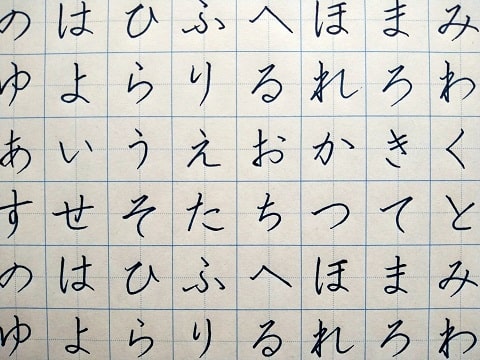 のはひふへほまみ
ゆよらりるれろわ
あいうえおかきく
すせそたちつてと
のはひふへほまみ
ゆよらりるれろわ